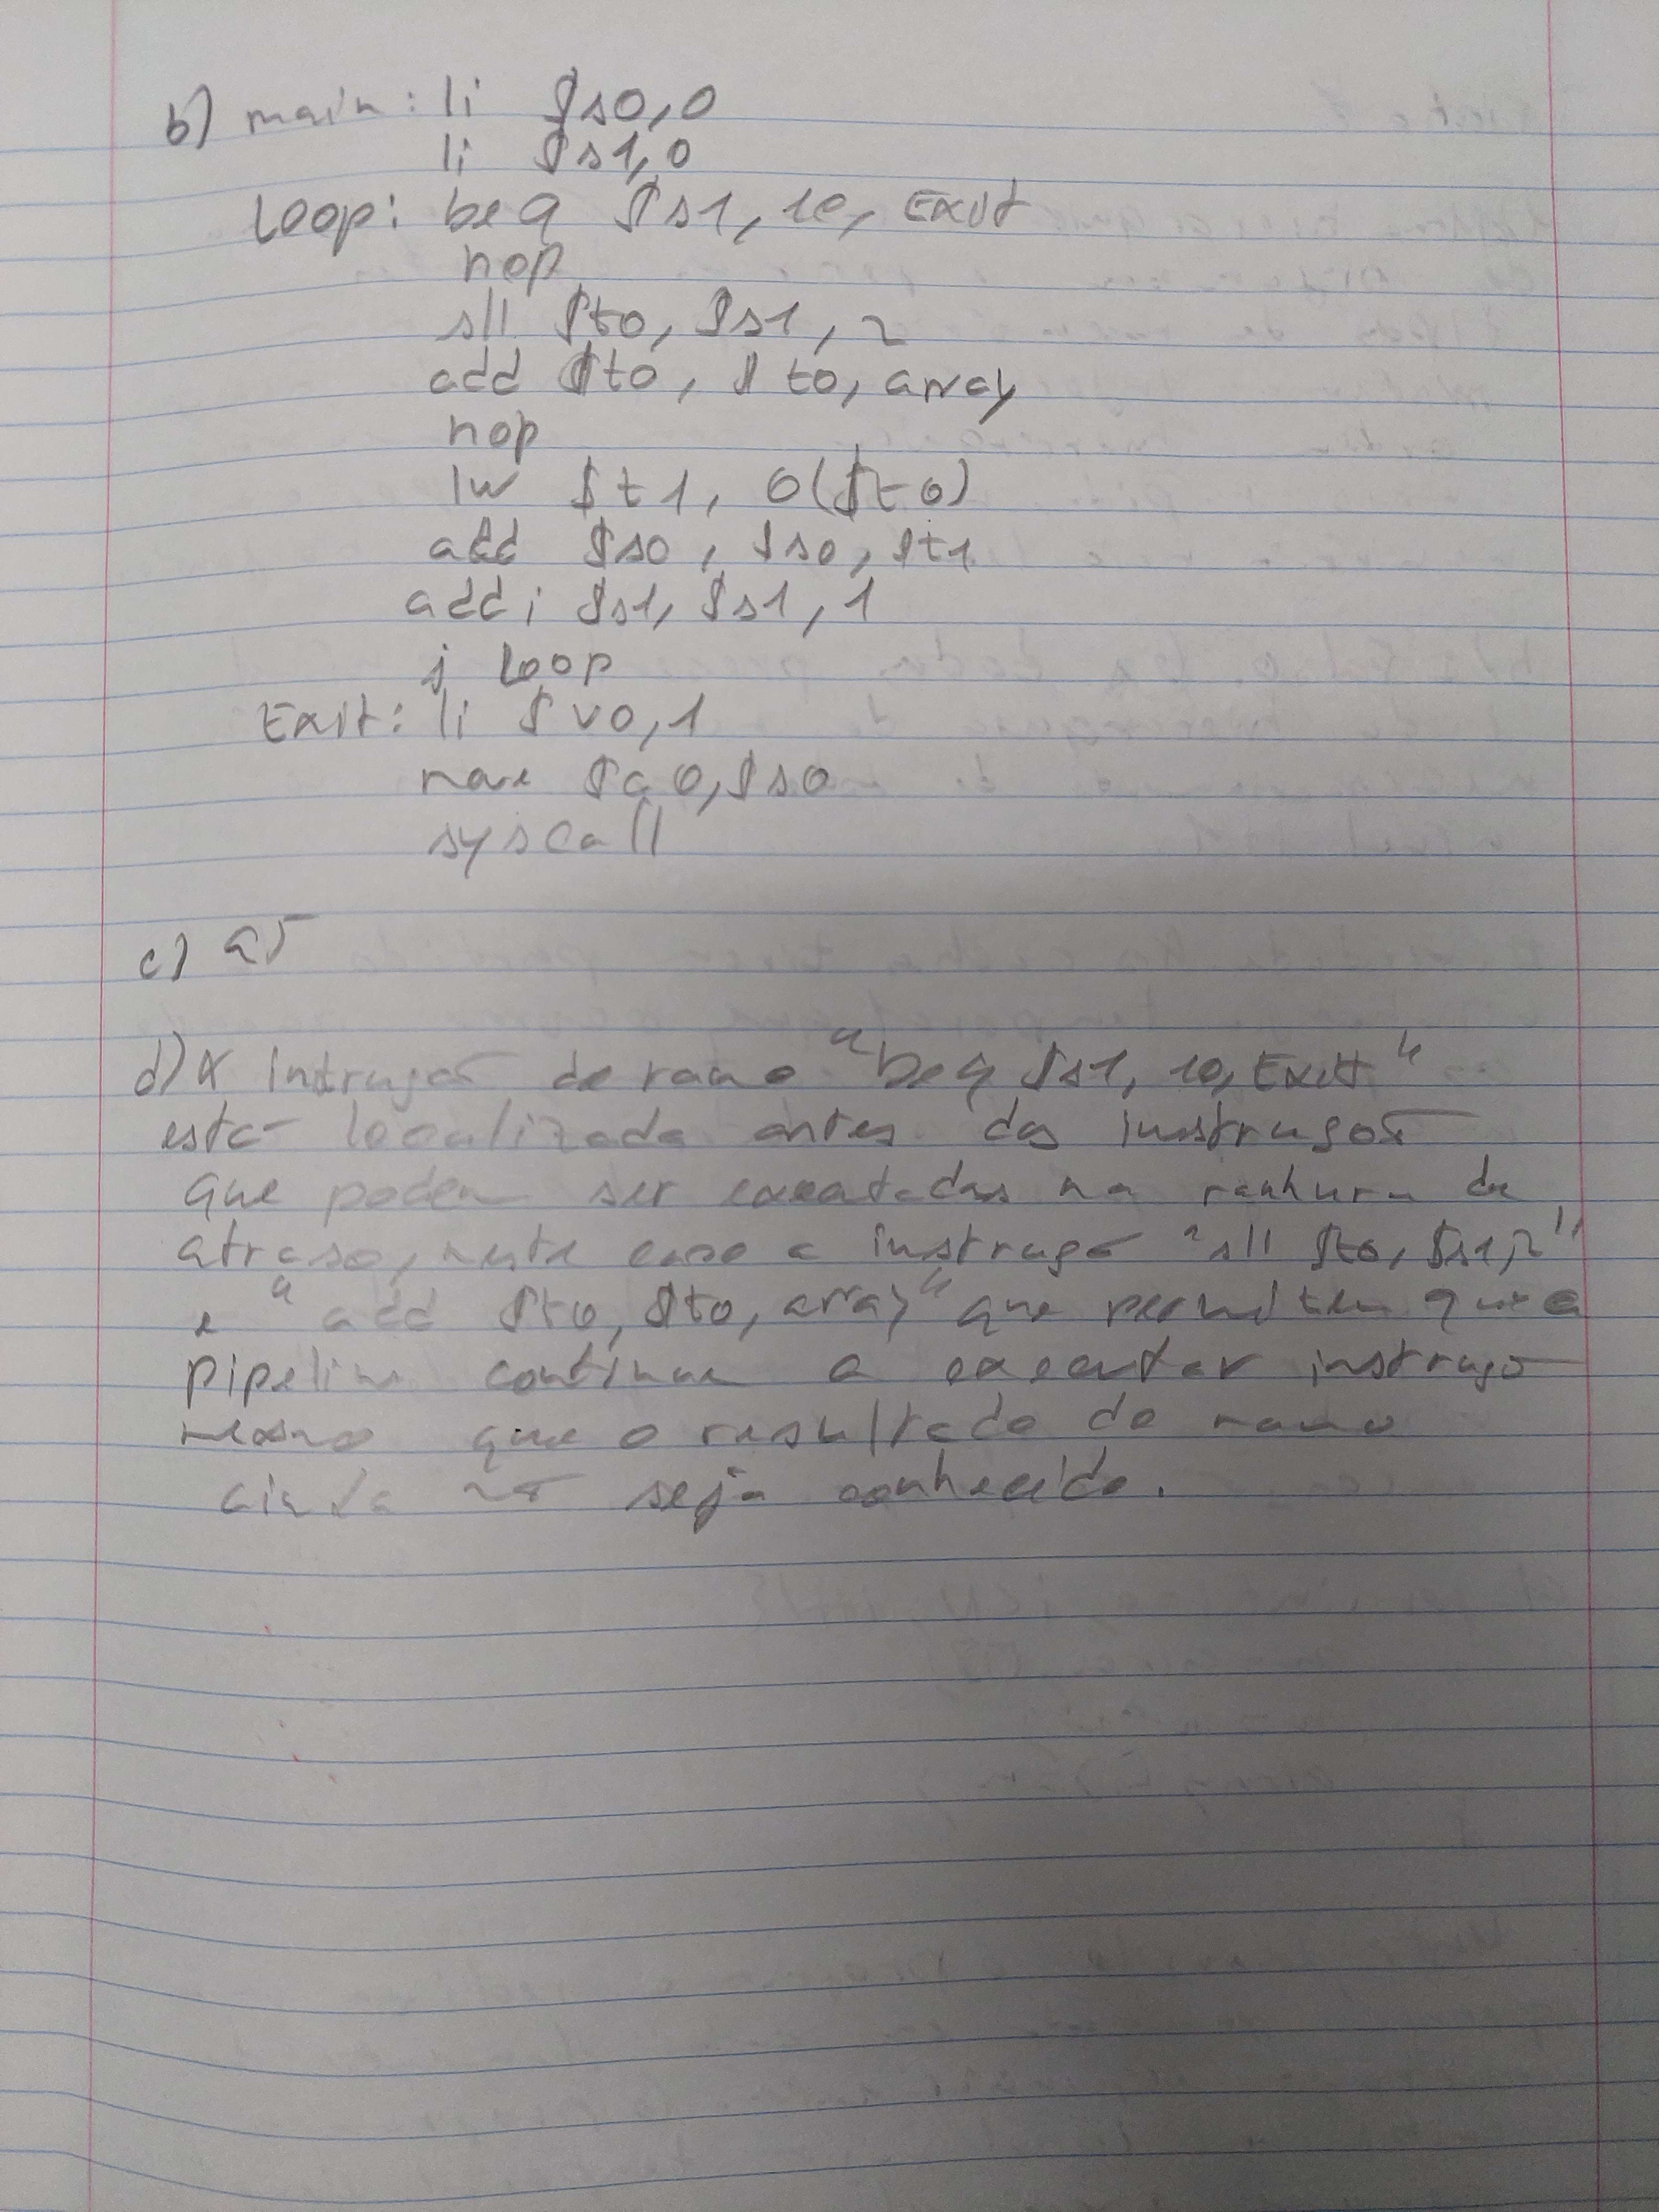 b) main: li $s0,0
li $s1,0
Loop: beq $s1, 10, Exit
nop
sll $t0, $s1, 2
add $t0, $t0, array
nop
lw $t1, 0($t0)
add $s0, $s0, $t1
addi $s1, $s1, 1
j Loop
Exit: li $v0,1
move $a0,$s0
syscall
c)
d) A instrução de ramo "beq $s1, 10, Exit"
está localizada antes das instruções
que podem ser executadas na ranhura de
atraso, neste caso a instrução "sll $t0, $s1,2"
e "add $t0, $t0, array" que permitem que a
pipeline continue a executar instrução
mesmo que o resultado do ramo
ainda não seja conhecido.